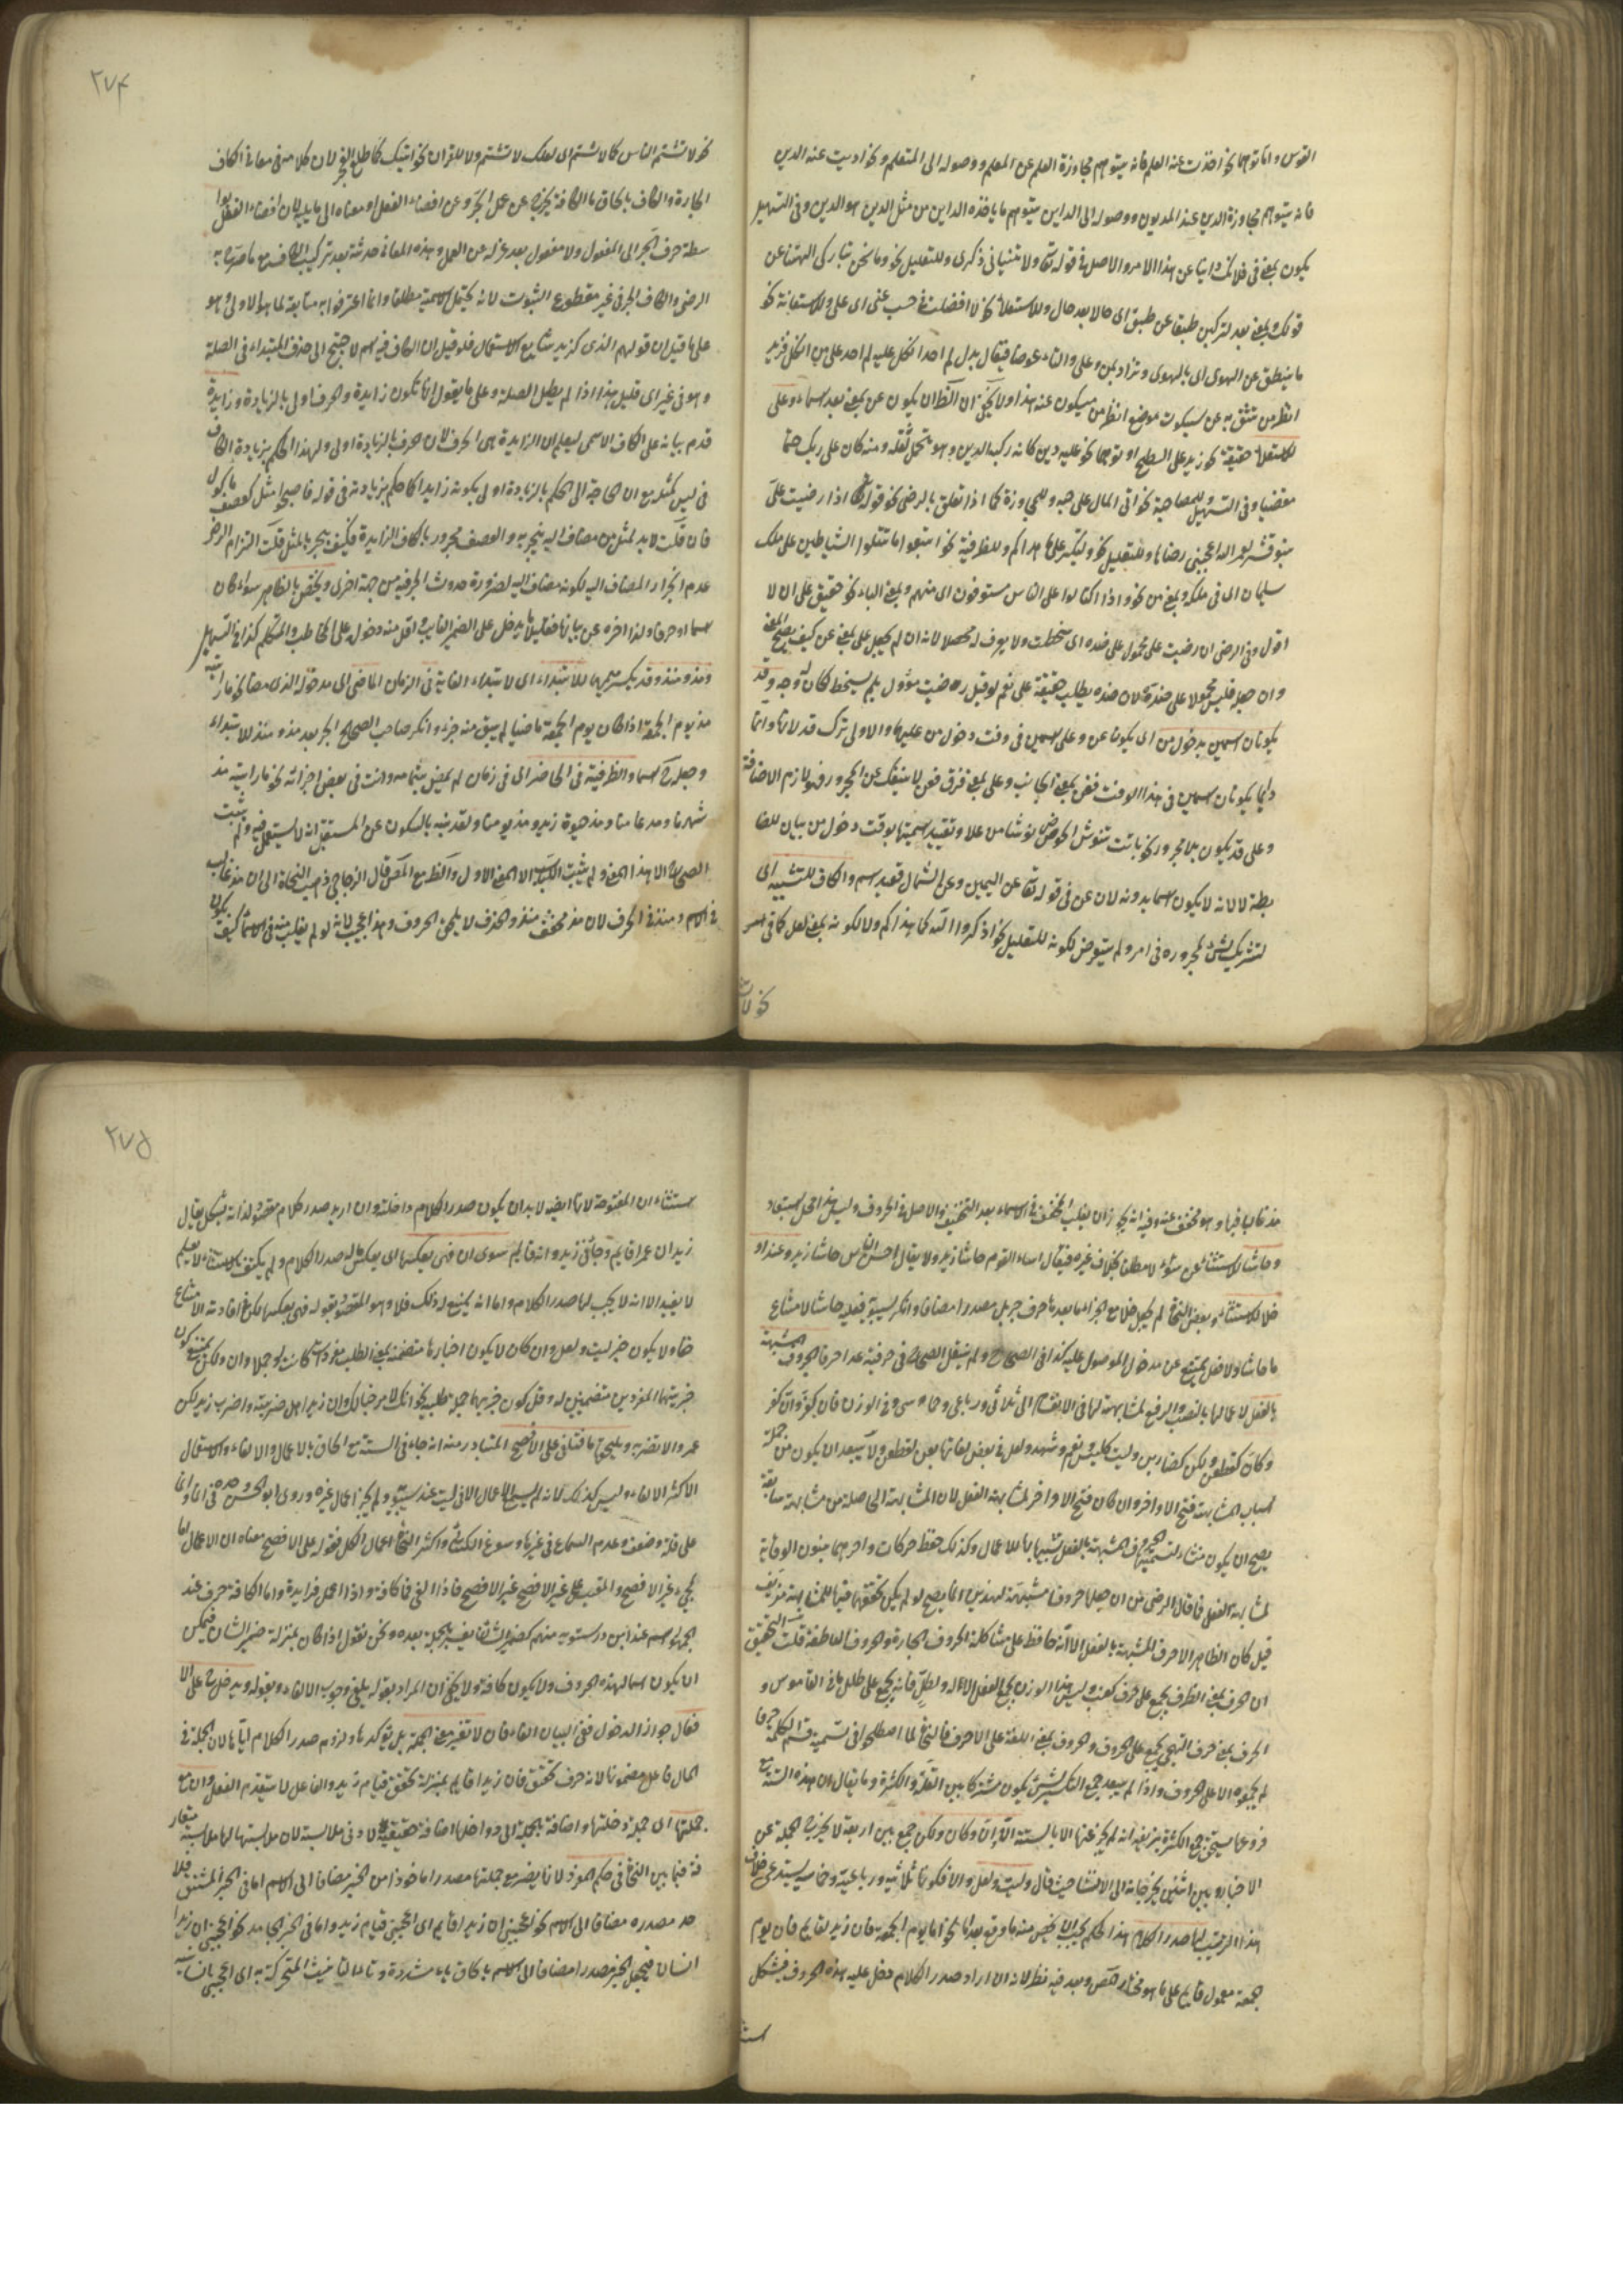 القوس واما توهما نحو اخذت عنه العلم فانه يتوهم مجاوزة العلم عن المعلم ووصوله الى المتعلم ونحو اديت عنه الدين
فانه يتوهم مجاوزة الدين عند المديون ووصوله الى الداين يتوهم ما ياخذه الداين من مثل الدين هو الدين وفى التسهيل
يكون بمعنى فى فلانك وانيا عن هذا الامر والاصل فى قوله تعالى ولا تنيا فى ذكرى وللتعليل نحو وما نحن بتاركى الهتنا عن
قولك وبمعنى بعد لتركبن طبقا عن طبق اى حالا بعد حال وللاستعلاء نحو لا افضلت فى حسب عنى اى على وللاستعانة نحو
ما ينطق عن الهوى اى بالهوى وتزاد بمن وعلى والتاء عوضا فيقال
انظر من تثق به عن سيكون موضع انظر من سيكون عنه هذا ولا يخفى ان الظ ان يكون عن بمعنى بعد اسماء وعلى
للاستعلاء حقيقة نحو زيد على السطح او توهما نحو عليه دين كانه ركبه الدين وهو تحمل ثقله ومنه كان على ربك حتما
مقضيا وفى التسهيل وللمصاحبة نحو اتى المال على حبه وللمجاوزة كما اذا تعلق بالرضى نحو قوله اذا رضيت على
بنو قشير لعمر الله اعجبنى رضاها وللتعليل نحو ولتكبروا على ما هداكم وللظرفية نحو اتبعوا ما تتلوا الشياطين على ملك
سليمان اى فى ملكه وبمعنى من نحو واذا اكتالوا على الناس يستوفون اى منهم وبمعنى الباء نحو حقيق على ان لا
اقول وفى الرضى ان رضيت على محمول على ضده اى سخطت ولا يعرف له محصلا لانه ان لم يجعل على بمعنى عن كيف يصح المعنى
وان جعل فليس محمولا على ضده لان ضده يطلب حقيقة على نعم لو قيل رضيت مؤول بلم يسخط لكان له وجه وقد
يكونان اسمين بدخول من اى يكونا عن وعلى اسمين فى وقت دخول من عليهما والاولى ترك قد لانهما
دايما يكونان اسمين فى هذا الوقت فعن بمعنى الجانب وعلى بمعنى فوق فعن لا ينفك عن المجرور فهو لازم الاضافة
وعلى قد يكون بلا مجرور نحو باتت تنوش الحوض نوشا من علا وتقييد اسميتها بوقت دخول من بيان للضا
بطة لا لانه لا يكون اسما بدونه لان عن فى قوله تعالى عن اليمين وعن الشمال قعيد اسم والكاف للتشبيه اى
لتشريك شئ لمجروره فى امر ولم يتعرض لكونه للتعليل نحو اذكروا الله كما هداكم ولا لكونه بمعنى لعل كما فى
نحو لا
٢٧٤
نحو لا تشتم الناس كما لا تشتم اى لعلك لا تشتم ولا للقران نحو اتيتك كما طلع الفجر لان كلامه فى معانى الكاف
الجارة والكاف بالحاق ما الكافة يخرج عن عمل الجر وعن افضاء الفعل او معناه الى ما يليه لان افضاء الفعل بوا
سطة حرف الجر الى المفعول ولا مفعول بعد عزله عن العمل وهذه المعانى حدثت بعد تركيب الكاف مع ما صرح به
الرضى والكاف الجر فى غير مقطوع الثبوت لانه يحتمل الاسمية مطلقا وانما اعترفوا به متابعة لما هو الاولى وهو
على ما قيل ان قولهم الذى كزيد شايع الاستعمال فلو قيل ان الكاف فيه اسم لاحتيج الى حذف المبتداء فى الصلة
وهو فى غير اى قليل هذا اذا لم يطل الصلة وعلى ما يقول انما تكون زايدة وحرفا اولى بالزيادة وزايدة
قدم بيانه على الكاف الاسمى ليعلم ان الزايدة هى الحرف لان حرف بالزيادة اولى ولهذا الحكم بزيادة الكاف
فى ليس كمثله مع ان الحاجة الى الحكم بالزيادة اولى بكونه زايدا كما حكم بزيادته فى قوله فاصبحوا مثل كعصف ماكول
فان قلت لابد لمثل من مضاف اليه ينجر به والعصف مجرور بالكاف الزايدة فكيف ينجر بالمثل قلت التزم الرضى
عدم انجرار المضاف اليه لكونه مضاف اليه لضرورة حدوث الجر فيه من جهة اخرى ويختص بالظاهر سواء كان
اسما او حرفا ولذا اخره عن بيانها فقليلا ما يدخل على الضمير الغايب واقل منه دخوله على المخاطب والمتكلم كذا فى التسهيل
ومذ ومنذ وقد يكسر ميمهما للابتداء اى لابتداء الغاية فى الزمان الماضى اى مدخوله الذى مضى نحو ما رايته
مذ يوم الجمعة اذا كان يوم الجمعة ماضيا لم يبق منه جزء وانكر صاحب الصحاح الجر بعد مذ ومنذ للابتداء
وجعله ح اسما والظرفية فى الحاضر اى فى زمان لم يمض بتمامه وانت فى بعض اجزائه نحو ما رايته مذ
شهرنا ومذ عامنا ومذ حيوة زيد ومذ يومنا ولقد نبه بالسكون عن المستقبل انه لا يستعمل فيه ولم يثبت
الصحاح الا هذا المعنى ولم يثبت السيد الا المعنى الاول والظ مع المص قال الزجاجى ذهب النحاة الى ان مذ غالب
فى الاسم ومنذ فى الحرف لان مذ مخفف منذ والحذف لا يلحق الحروف وهذا عجيب لانه لو لم يغلب منذ فى الاسم كيف يكون
مذ غالبا فيها وهو مخفف عنه وفيه انه يجوز ان يغلب المخفف فى الاسماء بعد التخفيف والاصل فى الحروف وليس هذا محل استبعاد
وحاشا للاستثناء عن سوء لا مطلقا بخلاف غيره فيقال اساء القوم حاشا زيد ولا يقال احسن الناس حاشا زيد وعدا و
خلا للاستثناء وبعض النحاة لم يجعل خلا مع الجر اما بعد ما حرف جر بل مصدرا مضافا وانكر سيبويه فعلية حاشا لامتناع
ما حاشا ولا فعل يمتنع عن مدخول الموصول عليه كذا فى الصحاح ولم ينقل الصحاح فى حرفية عدا حرفا الحروف المشبهة
بالفعل لاعمالها بالنصب والرفع لمشابهتها فى الانقسام الى ثلاثى ورباعى وخماسى وفى الوزن فان كفر وان كفر
وكان كقطعن ولكن كضاربن وليت كليس نعم وشهد ولعل فى بعض لغاتها بعن لقطعن ولا يبعد ان يكون من جملة
اسباب المشابهة فتح الاواخر وان كان فتح الاواخر لمشابهة الفعل لان المشابهة الحاصلة من مشابهة سابقة
يصح ان يكون منشاء لتسميتها الحروف المشبهة بالفعل تشبيها بها للاعمال وكذلك حفظ حركات واخرهما بنون الوقاية
لمشابهة الفعل فما قال الرضى من ان جعلها حروفا مشبهة لهذين انما يصح لو لم يكن تحققهما فيها للمشابهة مزيف
قيل كان الظاهر الاحرف المشبهة بالفعل الا انه حافظ على مشاكلة الحروف الجارة والحروف العاطفة قلت التحقيق
ان الحرف بمعنى الطرف يجمع على حرف كعنب وليس هذا الوزن بجمع الفعل الا له ولطل فانه يجمع على طلل كما فى القاموس و
الحرف بمعنى حرف التهجى يجمع على الحروف والحروف بمعنى اللغة على الاحرف فالنحاة لما اصطلحوا فى تسمية قسم الكلمة حرفا
لم يجمعوه الا على الحروف واذا لم يبعد جمع التكسير لشئ يكون مشتركا بين القلة والكثرة وما يقال ان هذه الستة مع
فروعها يستحق جمع الكثرة يزيفه انه لم يخبر عنها الا بالستة ان وان وكان ولكن جمع بين اربعة لا يخرج الجملة عن
الاخبار وبين اثنين يخرجانه الى الانشاء حيث قال وليت ولعل والا فكونها ثلاثية ورباعية وخماسية يستدعى خلاف
هذا الترتيب لها صدر الكلام هذا الحكم يجب ان يخص منه ما وقع بعد اما نحو اما يوم الجمعة فان زيدا قايم فان يوم
الجمعة معمول قايم على ما هو مختار المص وبعد فيه نظر لانه ان اراد صدر الكلام دخل عليه هذه الحروف فيشكل
است
٢٧٥
استثناء ان المفتوحة لانها ايضا لابد ان يكون صدر الكلام داخلة وان اريد صدر كلام مقصود لذاته يشكل يقال
زيد ان عمرا قايم وجائنى زيد وانه قايم سوى ان فهى بعكسها اى بعكس ماله صدر الكلام ولم يكتف بالاستثناء لانه
لا يفيد الا انه لا يجب لها صدر الكلام واما انه يمتنع له ذلك فلا وهو المقصود بقوله فهى بعكسها لكن فى افادته الامتناع
خفاء ولا يكون خبر ليت ولعل وان كان لا يكون اخبارها متضمنة بمعنى الطلب مفردات كانت او جملا وان ولكن يمتنع كون
خبريتهما المفردين متضمنين له وقل كون خبريهما جملة طلبية نحو انك لا مرحبا بك وان زيدا هل ضربته واضرب زيد لكن
عمرو الا تضربه ويلحقها ما فتلغى على الافصح المتبادر منه انه جاء فى الستة مع الحاق ما الاعمال والالغاء والاستعمال
الاكثر الالغاء وليس كذلك لانه لم يسمع الاعمال الا فى ليت عند سيبويه ولم يجز اعمال غيره وروى ابو الحسن وحده فى انما
على قلة وضعف وعدم السماع فى غيرها وسوغ الكسائى واكثر النحاة اعمال الكل فقوله على الافصح معناه ان الاعمال لها
يجئ غير الافصح والمقيس على غير الافصح غير الافصح فاذا الغى فما كافة واذا اعمل فزايدة واما الكافة حرف عند
الجمهور اسم عند ابن درستويه مبهم كضمير الشان يفسر بجملة بعده ونحن نقول اذا كان بمنزلة ضمير الشان فيمكن
ان يكون اسما لهذه الحروف ولا يكون كافة ولا يخفى ان المراد بقوله يلغى وجوب الالغاء وبقوله ويدخل ح على الا
فعال جواز الدخول ففى البيان الغاء فان لا تغير معنى الجملة بل يؤكدها ولزوم صدر الكلام لها لان الجملة فى
الحال فاعل مضمونها لانه حرف تحقق فان زيدا قايم بمنزلة تحقق قيام زيد والفاعل لا يتقدم الفعل وان مع
جملتها اى جملة دخلتها واضافة الجملة الى دواخلها اضافة حقيقية لادنى ملابسة لان ملابستها لها ملابسة متعار
فة فيما بين النحاة فى حكم المفرد لانها يضر مع جملتها مصدرا ماخوذا من الخبر مضافا الى الاسم اما فى الخبر المشتق فلا
حد مصدره مضافا الى الاسم نحو اعجبنى ان زيدا قايم اى اعجبنى قيام زيد واما فى الخبر الجامد نحو اعجبنى ان زيدا
انسان فيجعل الخبر مصدرا مضافا الى الاسم بالحاق ياء مشددة وتاء التانيث المتحركة به اى اعجبنى انسانية